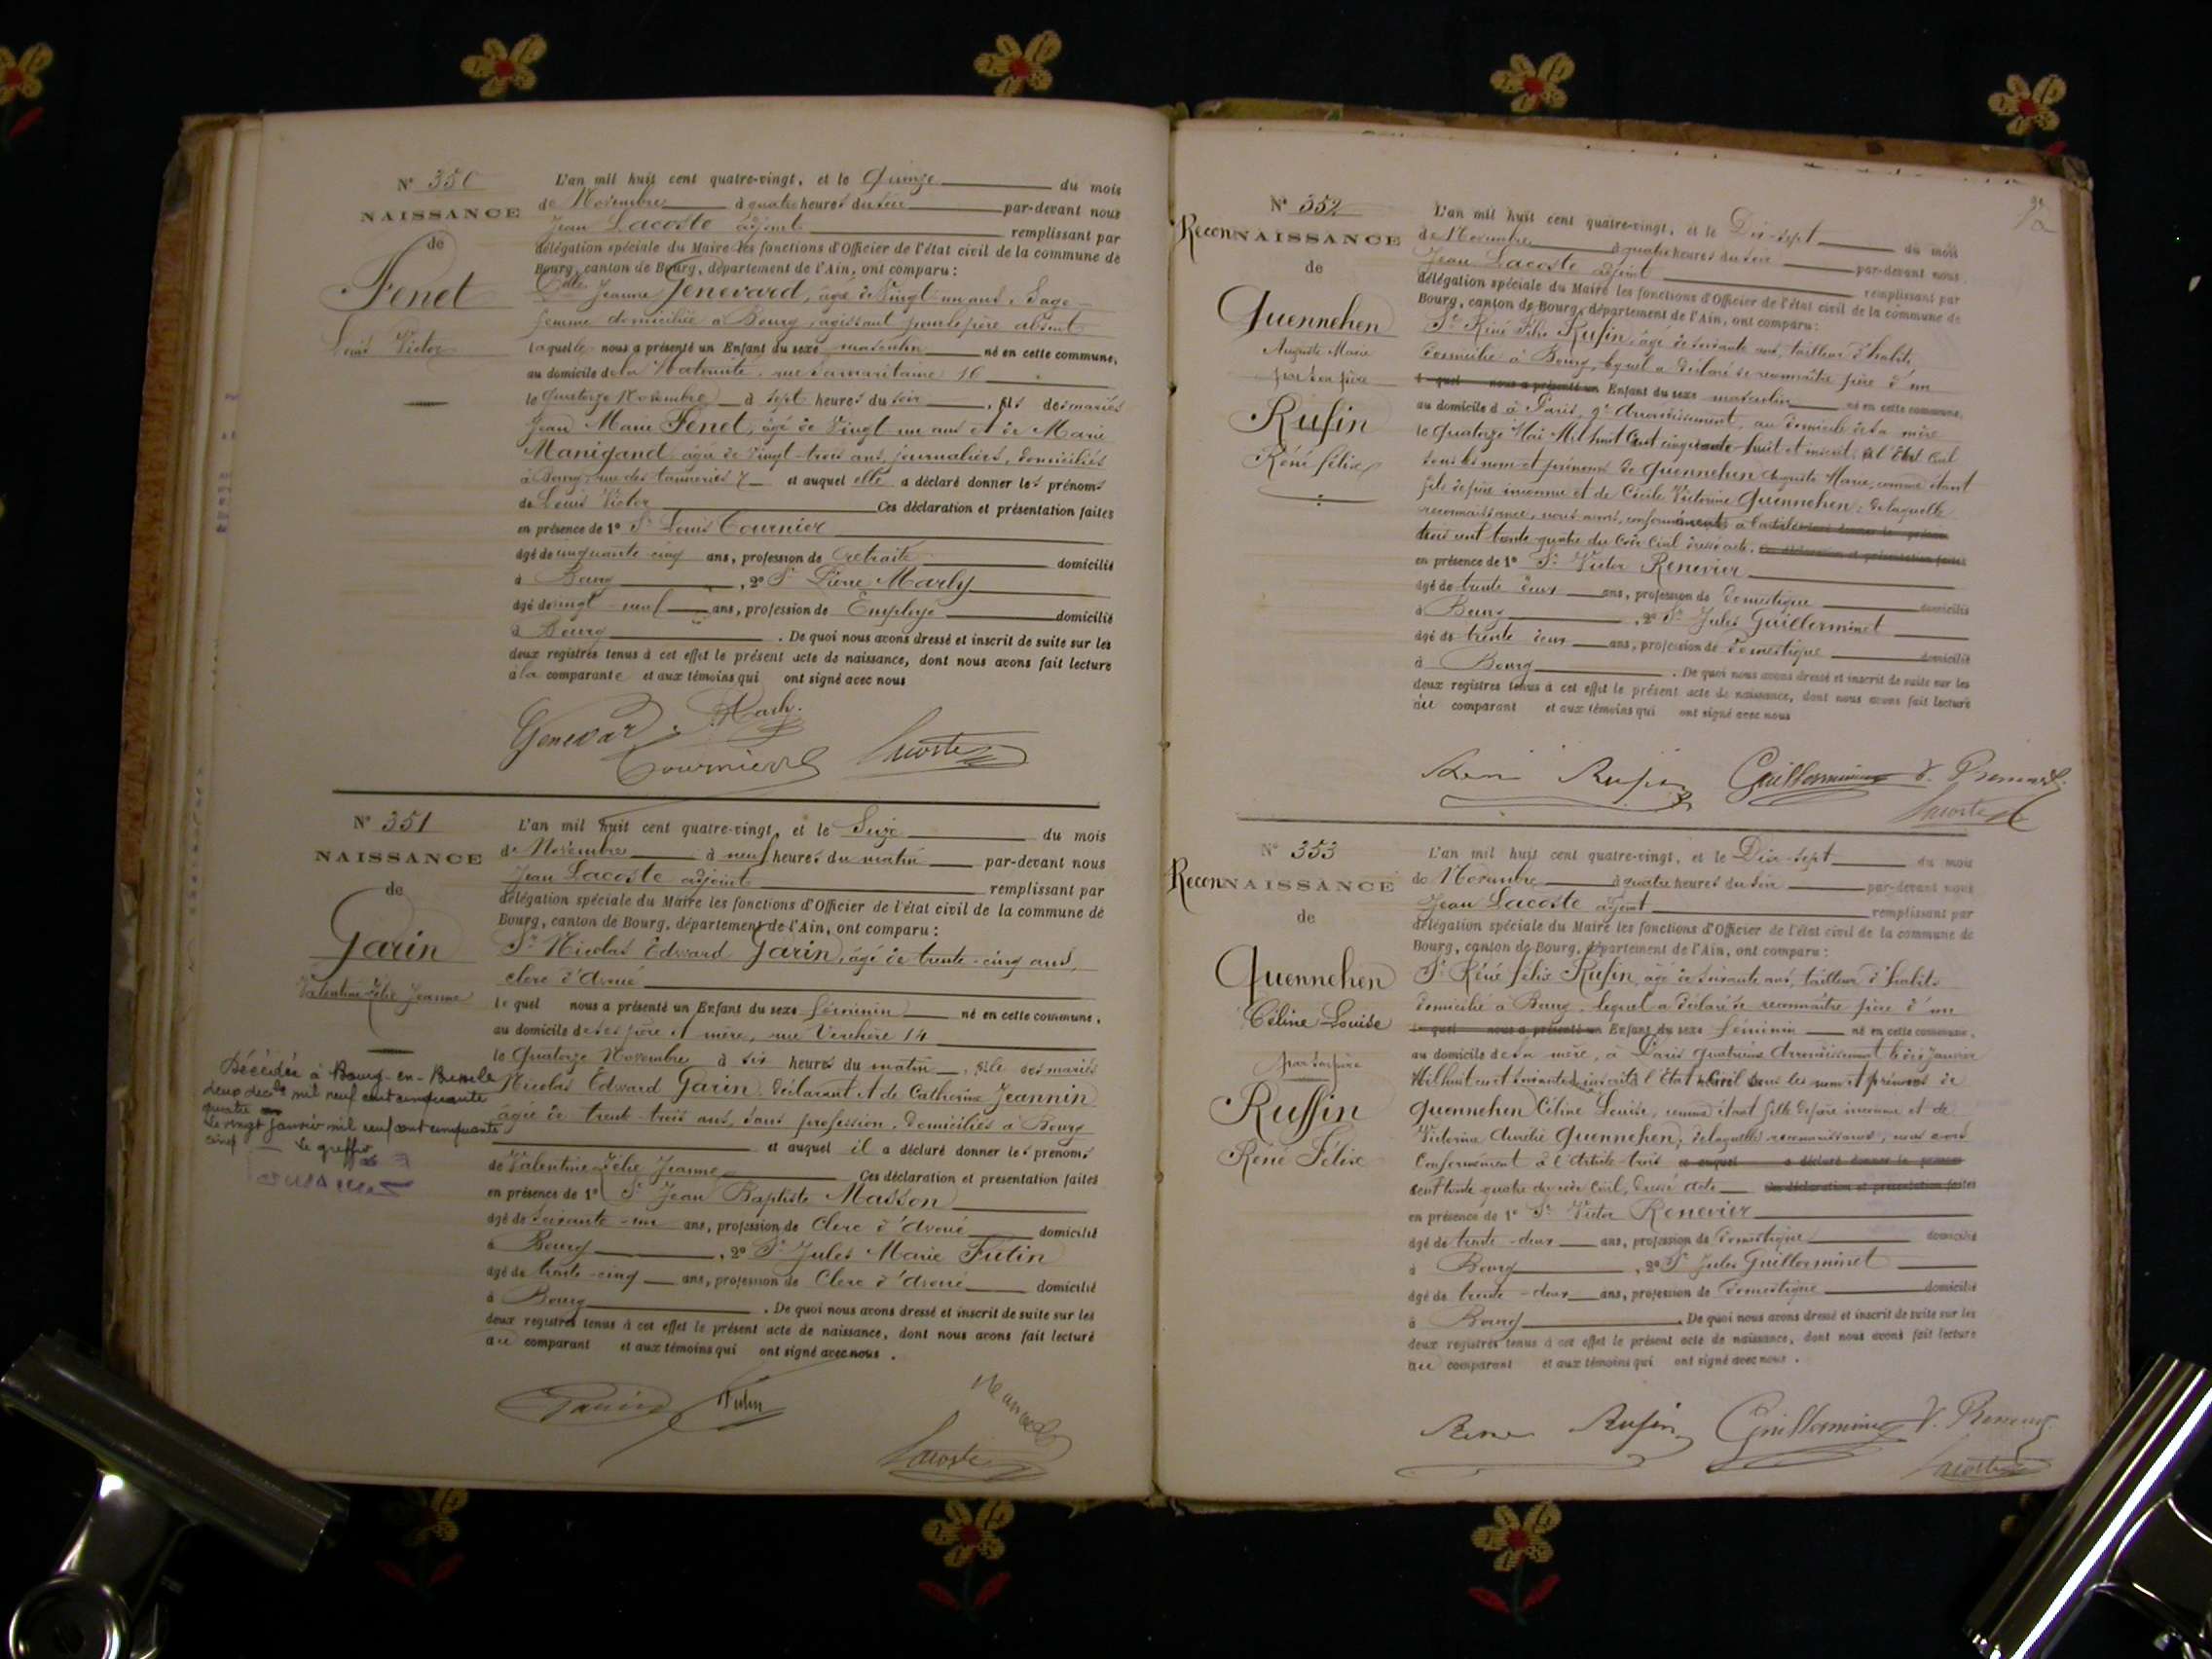 N° 350
NAISSANCE
de
Fenet
Louis Victor
L'an mil huit cent quatre-vingt, et le Quinze du mois
de Novembre à quatre heures du soir par-devant nous
Jean Lacoste adjoint remplissant par
délégation spéciale du Maire les fonctions d'Officier de l'état civil de la commune de
Bourg, canton de Bourg, département de l'Ain, ont comparu :
Delle Jeanne Genevard, âgée de Vingt-un ans, Sage-
femme domiciliée à Bourg, agissant pour le père absent
laquelle nous a présenté un Enfant du sexe masculin né en cette commune,
au domicile de la Maternité, rue Samaritaine 16
le Quatorze Novembre à sept heures du soir, fils des mariés
Jean Marie Fenet, âgé de Vingt-un ans et de Marie
Manigand âgée de Vingt-trois ans, journaliers, domiciliés
à Bourg, rue des tanneries 7 et auquel elle a déclaré donner les prénoms
de Louis Victor Ces déclaration et présentation faites
en présence de 1° Sr Louis Tournier
âgé de cinquante-cinq ans, profession de retraité domicilié
à Bourg, 2° Sr Pierre Marly
âgé de vingt-neuf ans, profession de Employé domicilié
à Bourg. De quoi nous avons dressé et inscrit de suite sur les
deux registres tenus à cet effet le présent acte de naissance, dont nous avons fait lecture
à la comparante et aux témoins qui ont signé avec nous
Genevard Marly
Tournier Lacoste
N° 351
NAISSANCE
de
Garin
Valentine Zélie Jeanne
L'an mil huit cent quatre-vingt, et le Seize du mois
de Novembre à neuf heures du matin par-devant nous
Jean Lacoste adjoint remplissant par
délégation spéciale du Maire les fonctions d'Officier de l'état civil de la commune de
Bourg, canton de Bourg, département de l'Ain, ont comparu :
Sr Nicolas Edward Garin, âgé de trente-cinq ans,
clerc d'avoué
lequel nous a présenté un Enfant du sexe féminin né en cette commune,
au domicile de ses père et mère, rue Verchère 14
le Quatorze Novembre à six heures du matin, fille des mariés
Nicolas Edward Garin, déclarant et de Catherine Jeannin
âgée de trente-trois ans, sans profession, domiciliés à Bourg
et auquel il a déclaré donner les prénoms
de Valentine Zélie Jeanne Ces déclaration et présentation faites
en présence de 1° Sr Jean Baptiste Masson
âgé de soixante-un ans, profession de Clerc d'avoué domicilié
à Bourg, 2° Sr Jules Marie Futin
âgé de trente-cinq ans, profession de Clerc d'avoué domicilié
à Bourg. De quoi nous avons dressé et inscrit de suite sur les
deux registres tenus à cet effet le présent acte de naissance, dont nous avons fait lecture
au comparant et aux témoins qui ont signé avec nous.
Garin Futin
Lacoste
Décédée à Bourg-en-Bresse le
deux décbre mil neuf cent cinquante
quatre
Le vingt janvier mil neuf cent cinquante
cinq Le greffier
N° 352
ReconNAISSANCE
de
Quennehen
Auguste Marie
par son père
Rufin
Réné félix
L'an mil huit cent quatre-vingt, et le Dix-sept du mois
de Novembre à quatre heures du soir par-devant nous
Jean Lacoste adjoint remplissant par
délégation spéciale du Maire les fonctions d'Officier de l'état civil de la commune de
Bourg, canton de Bourg, département de l'Ain, ont comparu :
Sr Réné Félix Rufin, âgé de soixante ans, tailleur d'habits,
domicilié à Bourg, lequel a déclaré se reconnaître père d'un
lequel nous a présenté un Enfant du sexe masculin né en cette commune,
au domicile d à Paris, 9e arrondissement, au domicile de sa mère
le Quatorze Mai Mil huit Cent cinquante-huit et inscrit à l'état civil
sous les nom et prénoms de Quennehen Auguste Marie, comme étant
fils de père inconnu et de Cécile Victorine Quennehen; de laquelle
reconnaissance, nous avons, conformément à l'article déclaré donner le prénom
trois cent trente quatre du Code Civil dressé acte. Ces déclaration et présentation faites
en présence de 1° Sr Victor Renevier
âgé de trente deux ans, profession de domestique domicilié
à Bourg, 2° Sr Jules Guillerminet
âgé de trente deux ans, profession de domestique domicilié
à Bourg. De quoi nous avons dressé et inscrit de suite sur les
deux registres tenus à cet effet le présent acte de naissance, dont nous avons fait lecture
au comparant et aux témoins qui ont signé avec nous
René Rufin Guillerminet V. Renevier
Lacoste
N° 353
ReconNAISSANCE
de
Quennehen
Céline Louise
par son père
Ruffin
René Félix
L'an mil huit cent quatre-vingt, et le Dix-sept du mois
de Novembre à quatre heures du soir par-devant nous
Jean Lacoste adjoint remplissant par
délégation spéciale du Maire les fonctions d'Officier de l'état civil de la commune de
Bourg, canton de Bourg, département de l'Ain, ont comparu :
Sr Réné félix Rufin, âgé de soixante ans, tailleur d'habits
domicilié à Bourg, lequel a déclaré se reconnaître père d'un
lequel nous a présenté un Enfant du sexe féminin né en cette commune,
au domicile de sa mère, à Paris quatrième arrondissement le dix Janvier
Mil huit cent soixante inscrit à l'état Civil sous les nom et prénoms de
Quennehen Céline Louise, comme étant fille de père inconnu et de
Victorine Aurélie Quennehen; de laquelle reconnaissance, nous avons
Conformément à l'Article trois et auquel a déclaré donner le prénom
cent trente quatre du code Civil, dressé acte Ces déclaration et présentation faites
en présence de 1° Sr Victor Renevier
âgé de trente-deux ans, profession de domestique domicilié
à Bourg, 2° Sr Jules Guillerminet
âgé de trente-deux ans, profession de domestique domicilié
à Bourg. De quoi nous avons dressé et inscrit de suite sur les
deux registres tenus à cet effet le présent acte de naissance, dont nous avons fait lecture
au comparant et aux témoins qui ont signé avec nous.
René Rufin Guillerminet V. Renevier
Lacoste